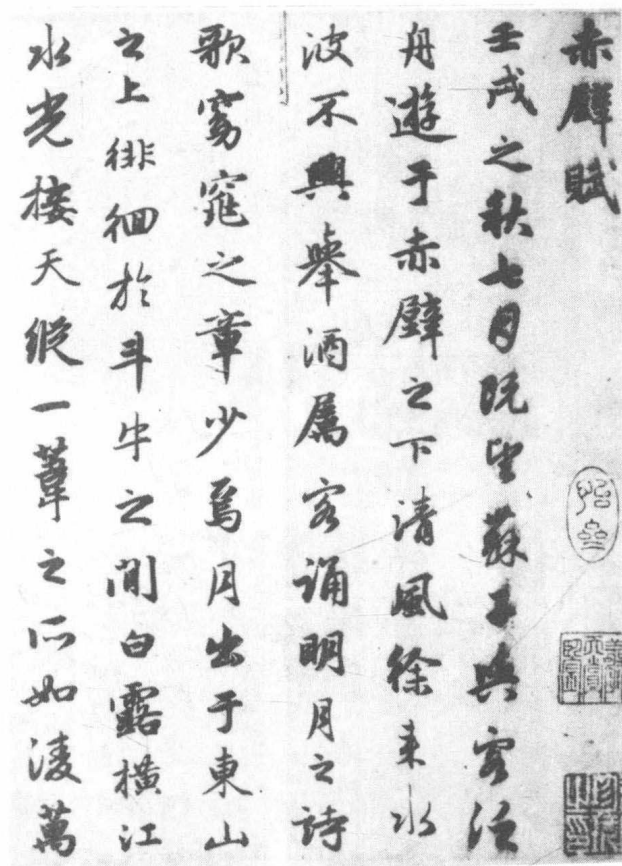 赤壁賦
壬戌之秋七月既望蘇子與客泛
舟遊于赤壁之下清風徐来水
波不興舉酒属客誦明月之詩
歌窈窕之章少焉月出于東山
之上徘徊於斗牛之間白露橫江
水光接天縱一葦之所如淩萬